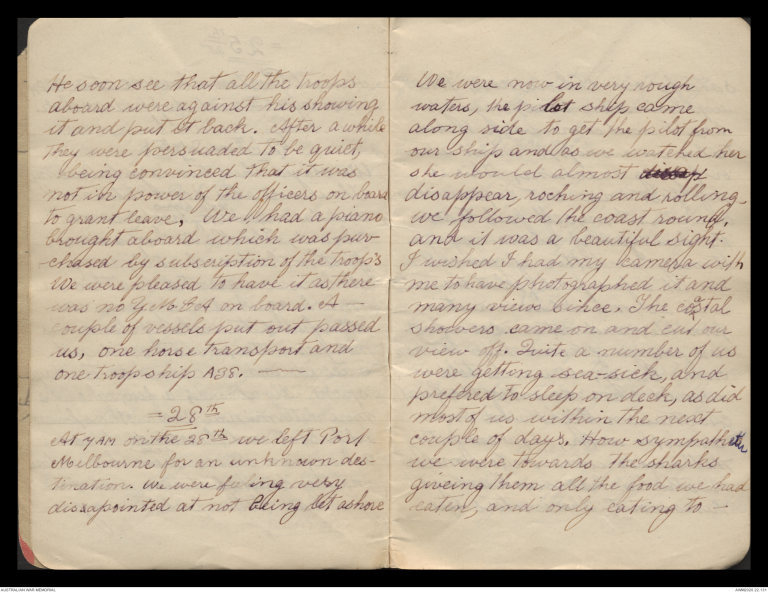 He soon see that all the troops
aboard were against his showing
it and put it back. After a while
they were persuaded to be quiet,
being convinced that it was
not in power of the officers on board
to grant leave, We had a piano
brought aboard which was pur-
-chased by subscription of the troops
We were pleased to have it as there
was no Y.M.C.A on board. A —
couple of vessels put out passed
us, one horse transport and
one troopship A38. —
= 28th
At 7 AM on the 28th we left Port
Melbourne for an unknown des-
tination. We were feeling very
dissapointed at not being let ashore
We were now in very rough
waters, the pilot ship came
along side to get the pilot from
our ship and as we watched her
she would almost
disappear, rocking and rolling.
we followed the coast round,
and it was a beautiful sight.
I wished I had my camera with
me to have photographed it and
many views since. The coastal
showers came on and cut our
view off. Quite a number of us
were getting sea-sick, and
prefered to sleep on deck, as did
most of us within the next
couple of days. How sympathetic
we were towards the sharks
giveing them all the food we had
eaten, and only eating to —
AUSTRALIAN WAR MEMORIAL